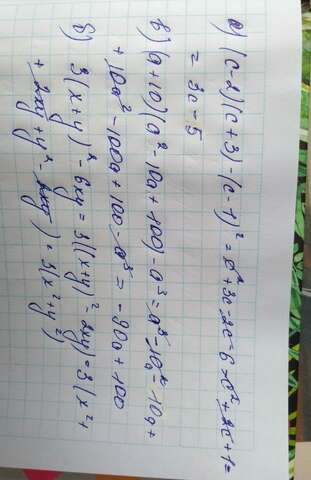 а) (c-2)(c+3)-(c-1)² = c²+3c-2c-6-c²+2c+1=
= 3c-5
в) (a+10)(a²-10a+100)-a³=a³-10a²-10a+
+10a²-100a+100-a³= -90a+100
б) 3(x+y)²-6xy=3((x+y)²-2xy)=3(x²+
+2xy+y²-2xy)=3(x²+y²)